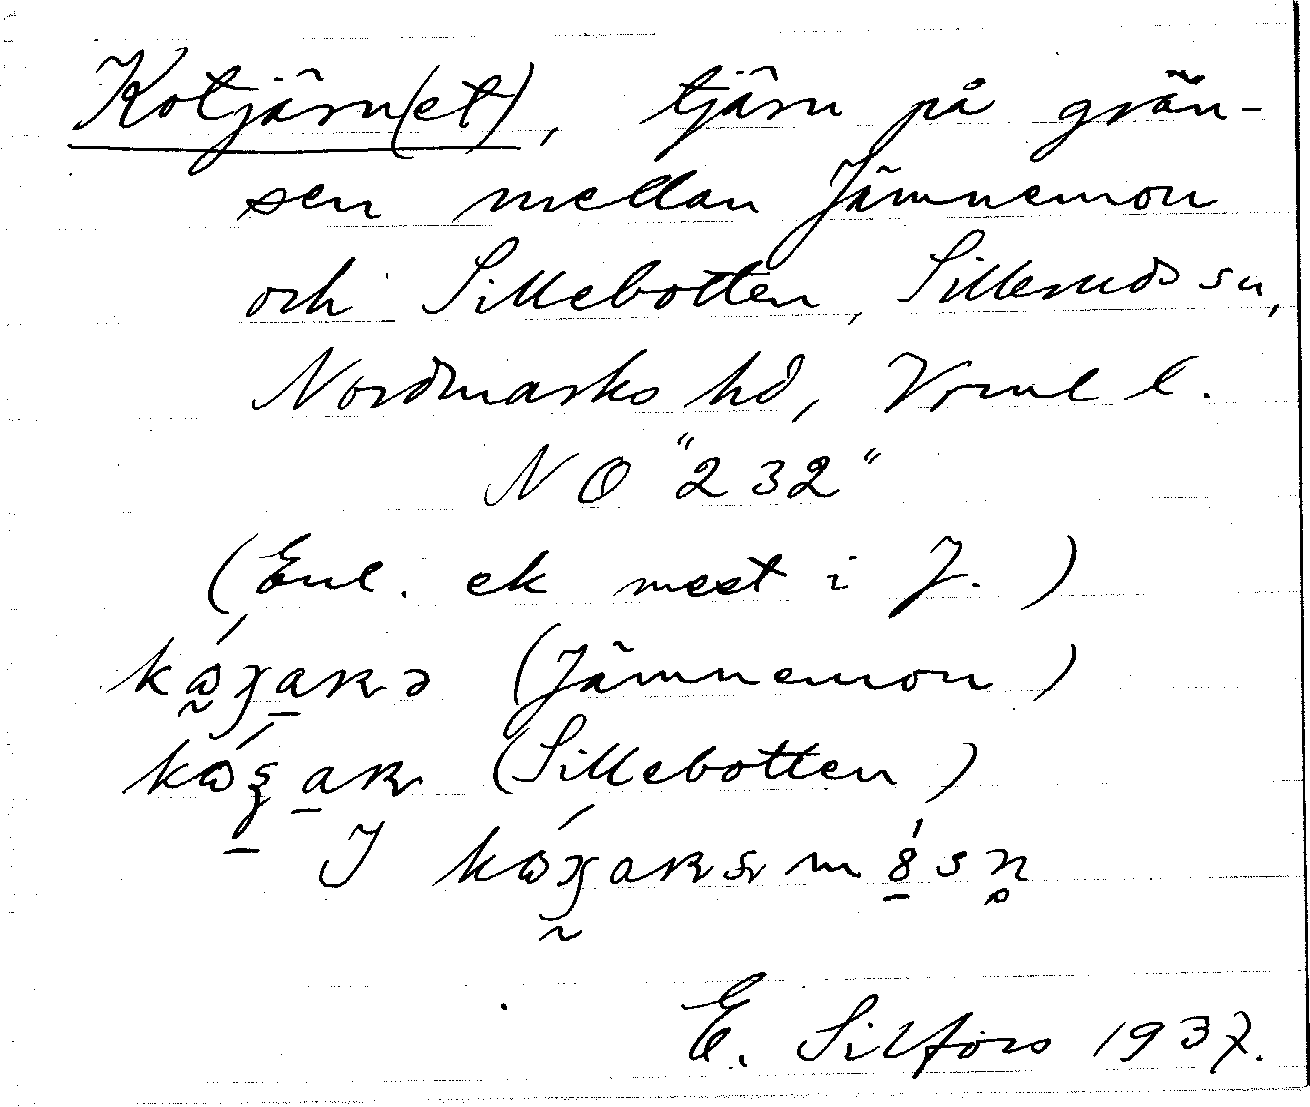 Kotjärn(et), tjärn på grän-
sen mellan Jämnemon
och Sillebotten, Silleruds sn,
Nordmarks hd, Vrml l.
NO "232"
(Enl. ek mest i J.)
(Jämnemon)
(Sillebotten)
J
E. Silfors 1937.